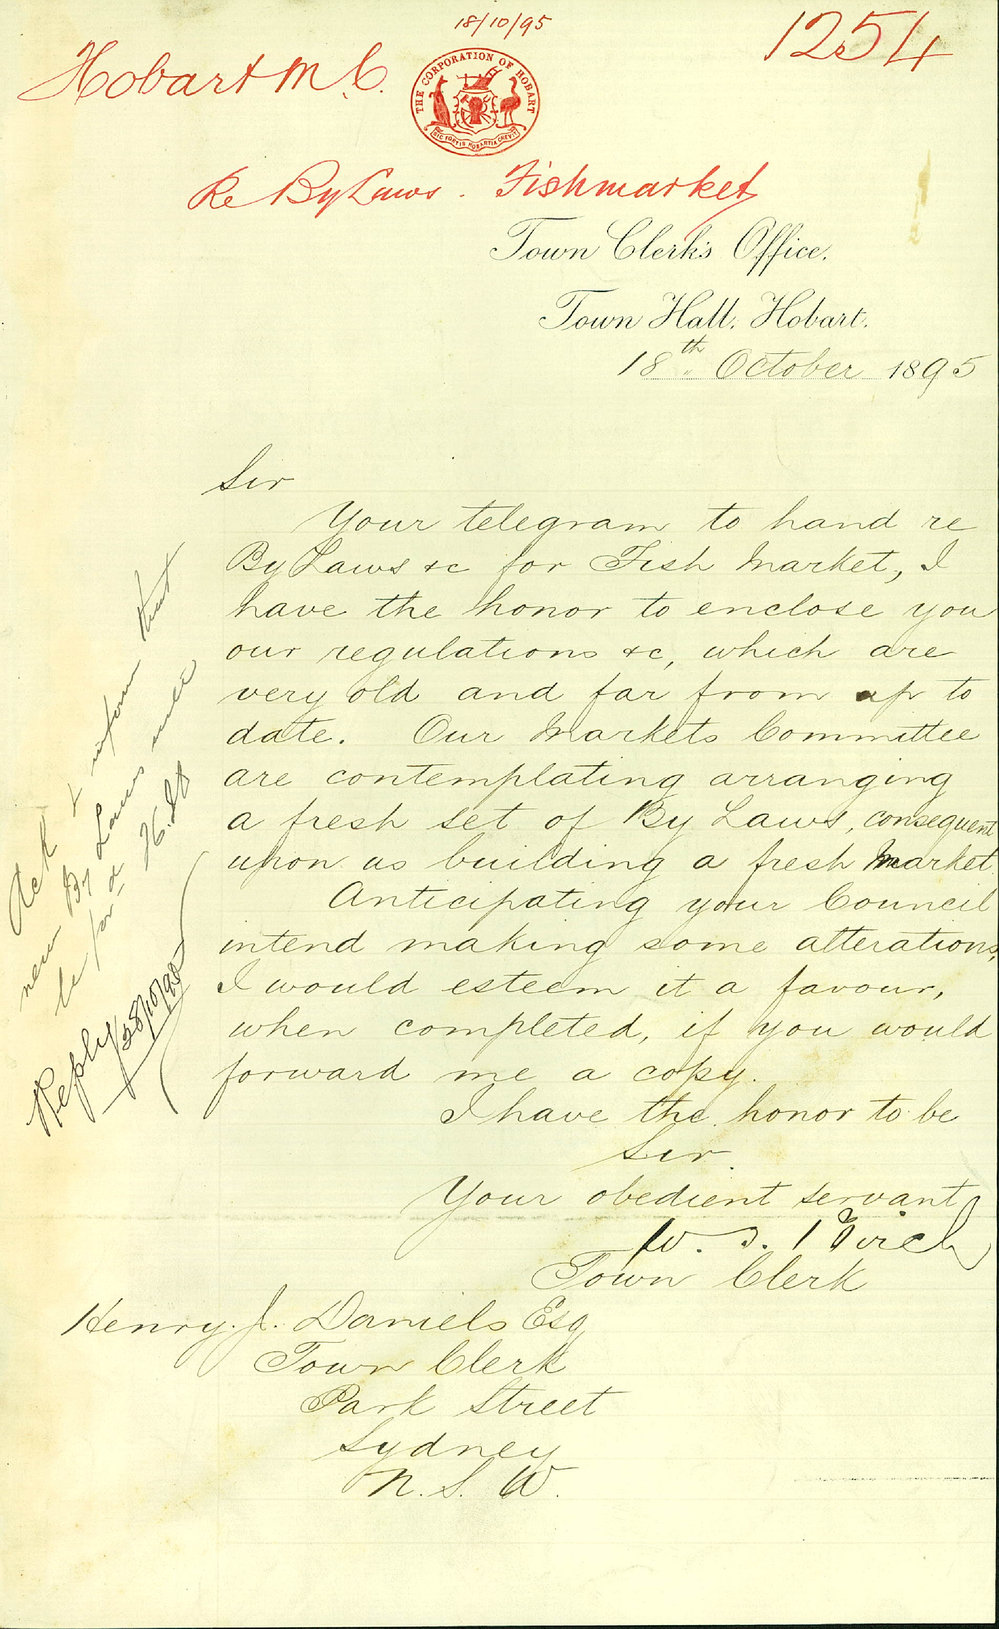 18/10/95
1254
Hobart M.C.
THE CORPORATION OF HOBART
SIC FORTIS HOBARTIA CREVIT
Re By Laws. Fishmarket
Town Clerk's Office.
Town Hall, Hobart.
18th October 1895
Sir
Your telegram to hand re
By Laws &c for Fish Market, I
have the honor to enclose you
our regulations &c, which are
very old and far from up to
date. Our Markets Committee
are contemplating arranging
a fresh set of By Laws, consequent
upon us building a fresh Market.
Anticipating your Council
intend making some alterations,
I would esteem it a favour,
when completed, if you would
forward me a copy.
I have the honor to be
Sir.
Your obedient servant
Town Clerk
Henry. J. Daniels Esq
Town Clerk
Park Street
Sydney
N. S. W.
Ack & inform that
new By Laws will
be for
Reply 28/10/95